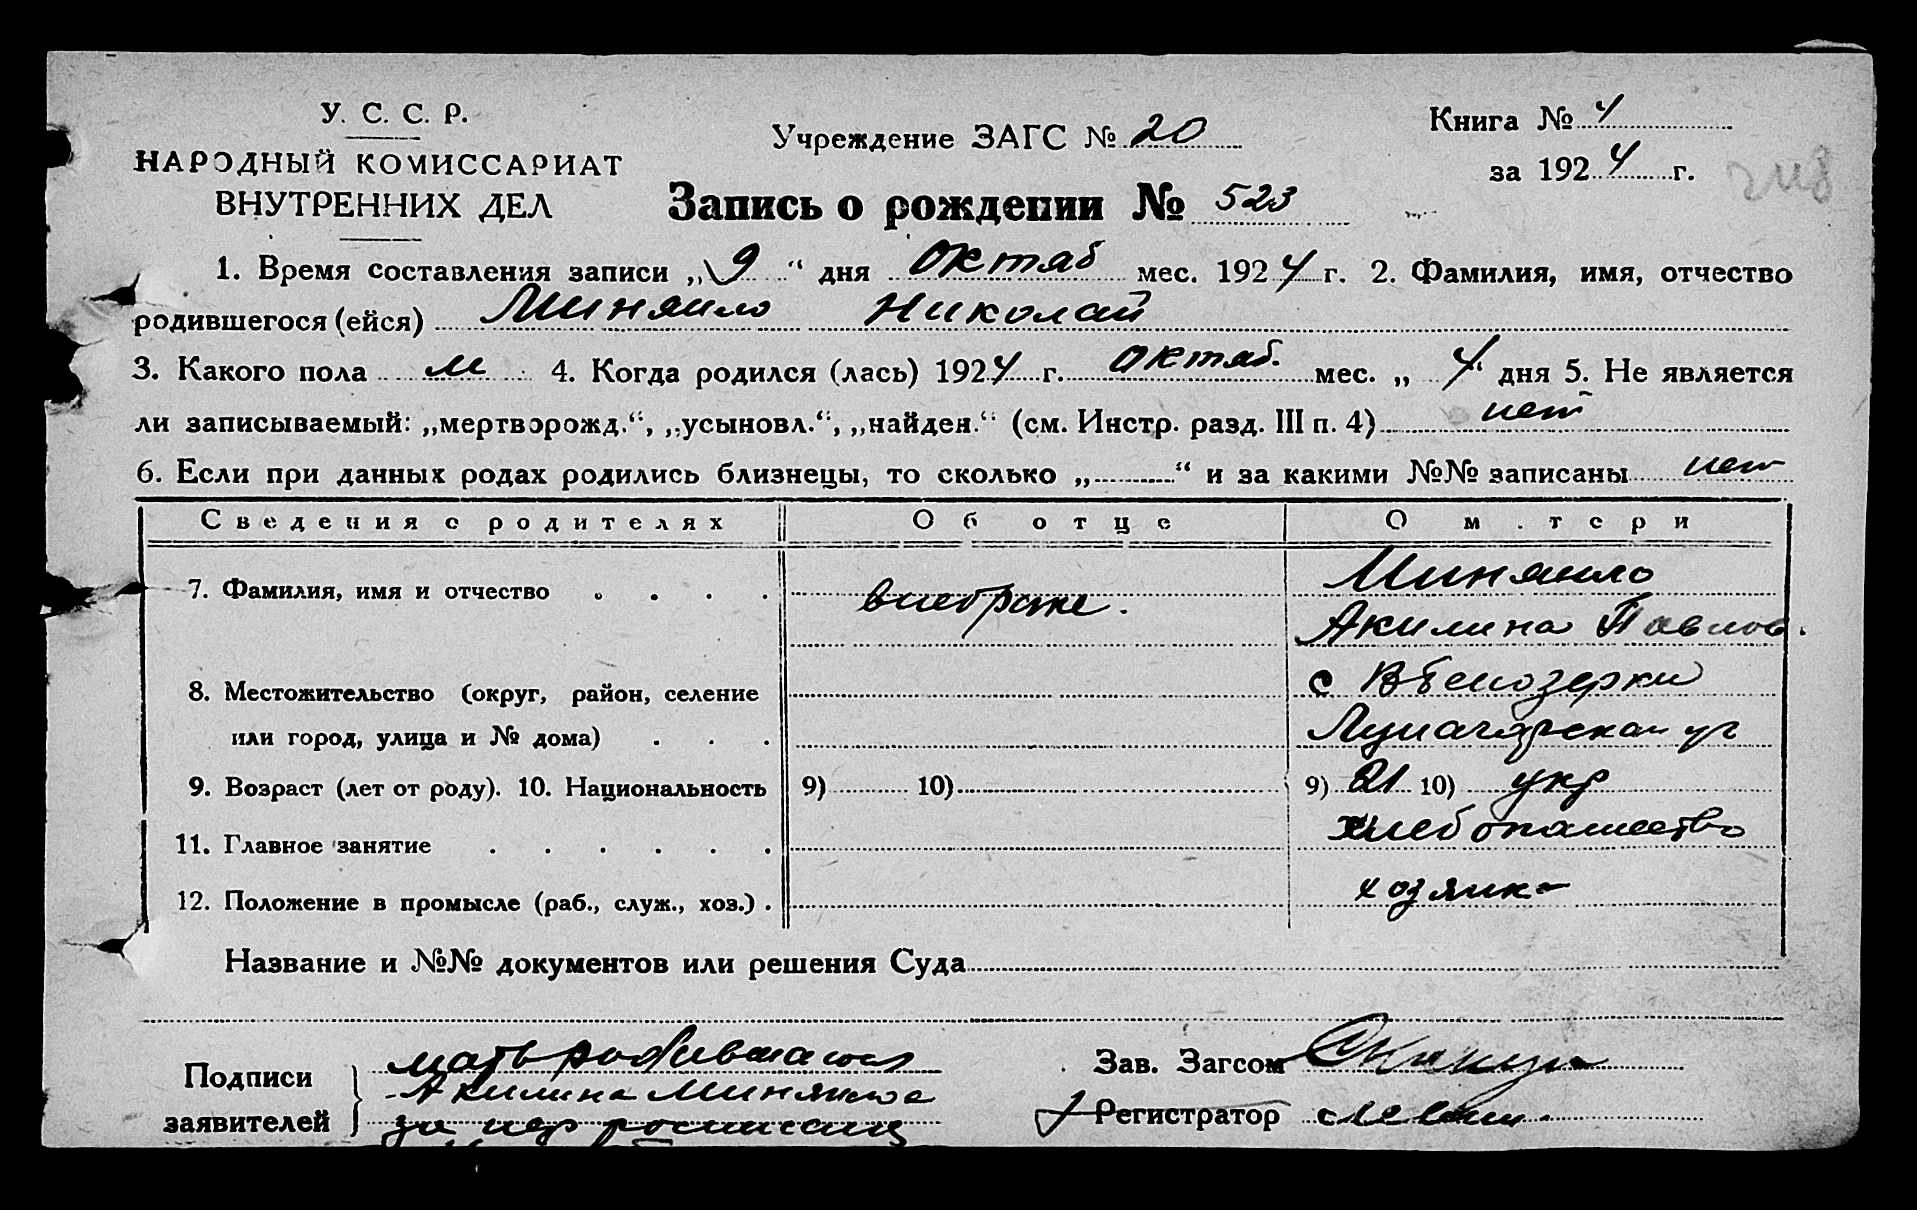 У. С. С. Р.
НАРОДНЫЙ КОМИССАРИАТ
ВНУТРЕННИХ ДЕЛ
Учреждение ЗАГС № 20
Книга № 4
за 1924 г.
Запись о рождении № 523
1. Время составления записи „9“ дня Октяб мес. 1924 г. 2. Фамилия, имя, отчество
родившегося (ейся) Миняило Николай
3. Какого пола м 4. Когда родился (лась) 1924 г. Октяб. мес. „4“ дня 5. Не является
ли записываемый: „мертворожд.“, „усыновл.“, „найден.“ (см. Инстр. разд. III п. 4) нет
6. Если при данных родах родились близнецы, то сколько „ “ и за какими №№ записаны нет
Сведения о родителях Об отце О матери
7. Фамилия, имя и отчество внебрачн. Миняило
Акилина Павлов.
8. Местожительство (округ, район, селение с В Белозерки
или город, улица и № дома) Луначарская ул
9. Возраст (лет от роду). 10. Национальность 9) 10) 9) 21 10) укр
11. Главное занятие хлебопашество
12. Положение в промысле (раб., служ., хоз.) хозяйка
Название и №№ документов или решения Суда
Подписи заявителей мать
Акилина Миняило
за нер
Зав. Загсом
Регистратор